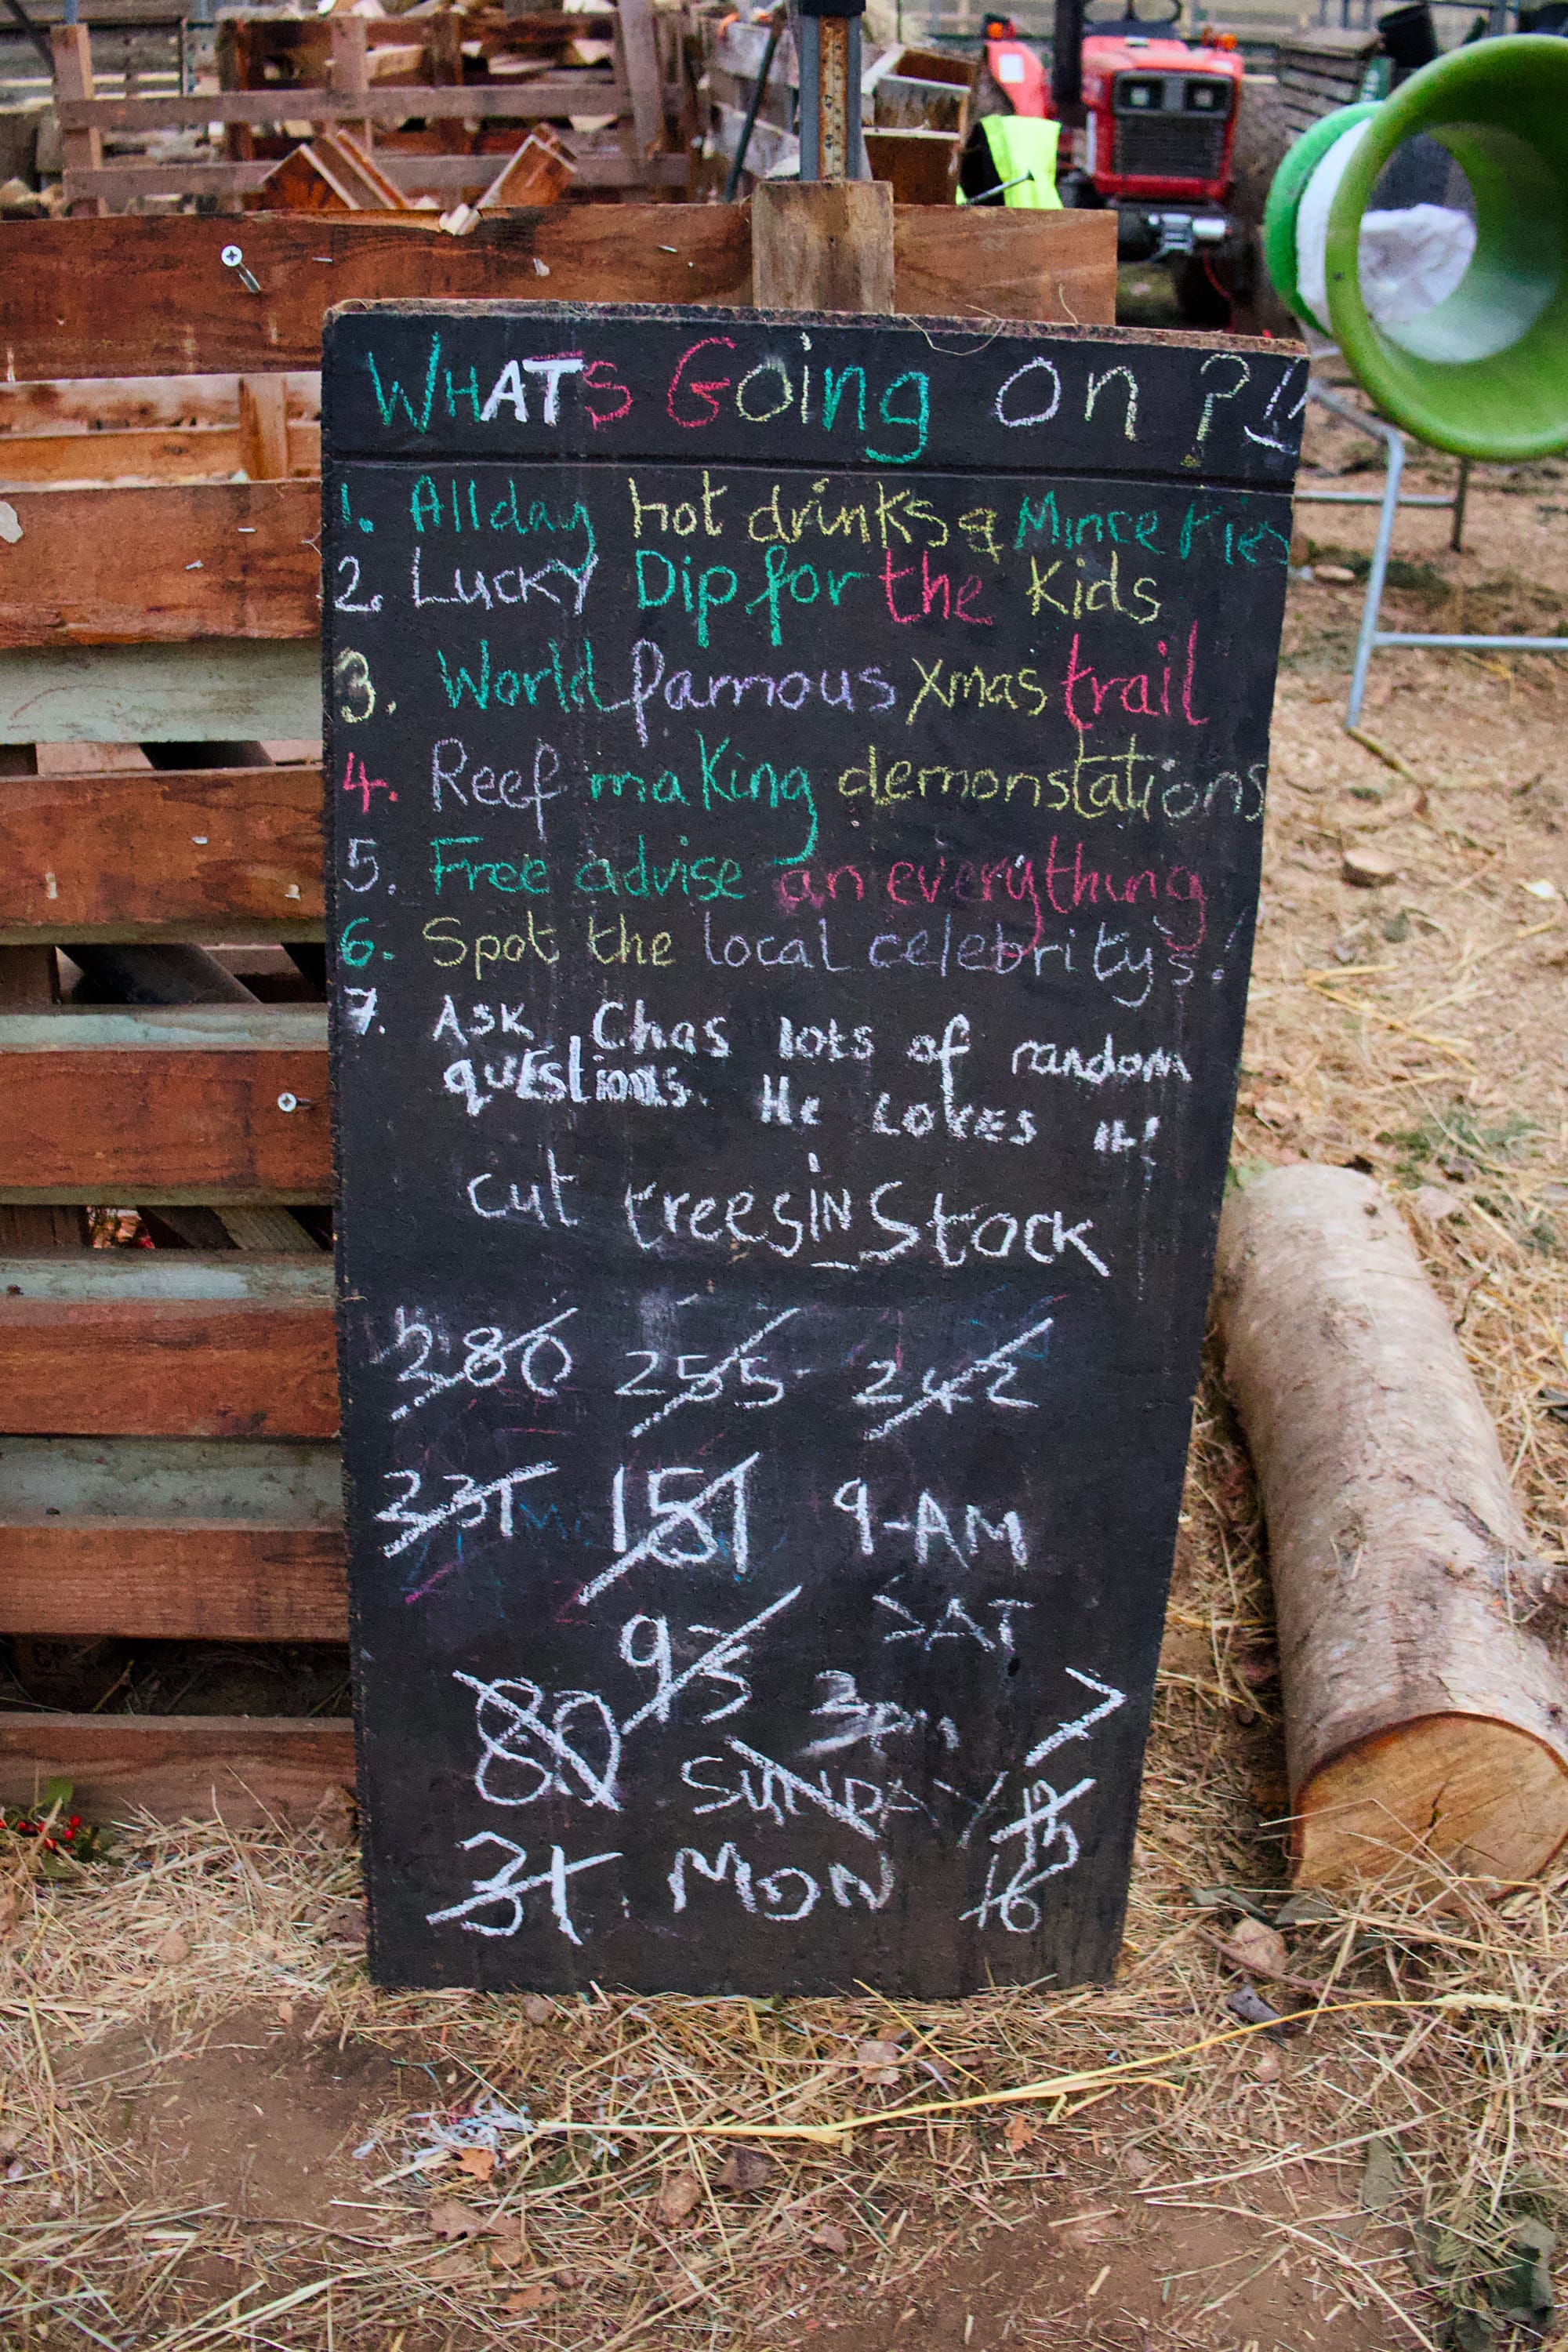 WHATS Going on ?!!
1. All day hot drinks & Mince Pies
2. Lucky Dip for the Kids
3. World famous Xmas trail
4. Reef making demonstations
5. Free advise an everything
6. Spot the local celebrity's!
7. ASK Chas lots of random
questions. He LOVES it!
cut trees iN Stock
280 255 242
231 151 9-AM
93 SAT
80 3pm 7
SUNDAY
31. MON 16